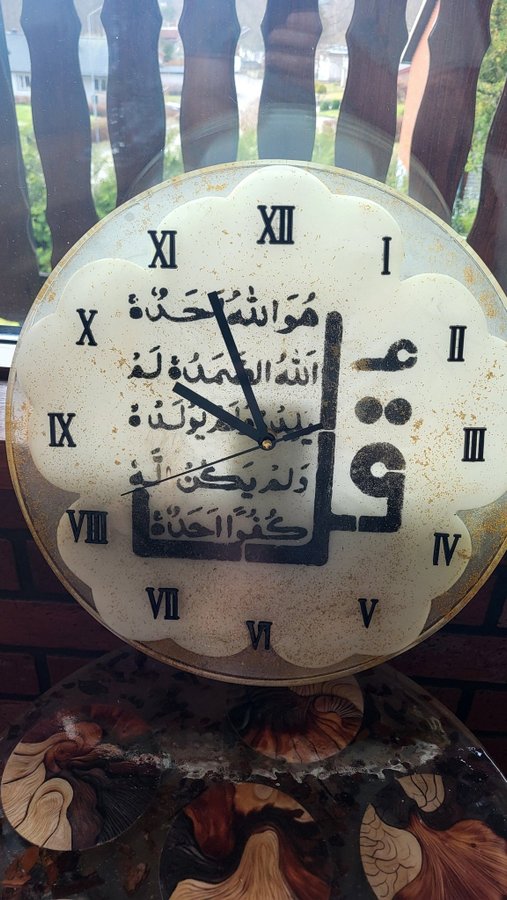 XII
I
II
III
IV
V
VI
VII
VIII
IX
X
XI
قل
هُوَ اللهُ اَحَدٌ
اَللهُ الصَّمَدُ لَمْ
يَلِدْ وَلَمْ يُولَدْ
وَلَمْ يَكُنْ لَهُ
كُفُوًا اَحَدٌ